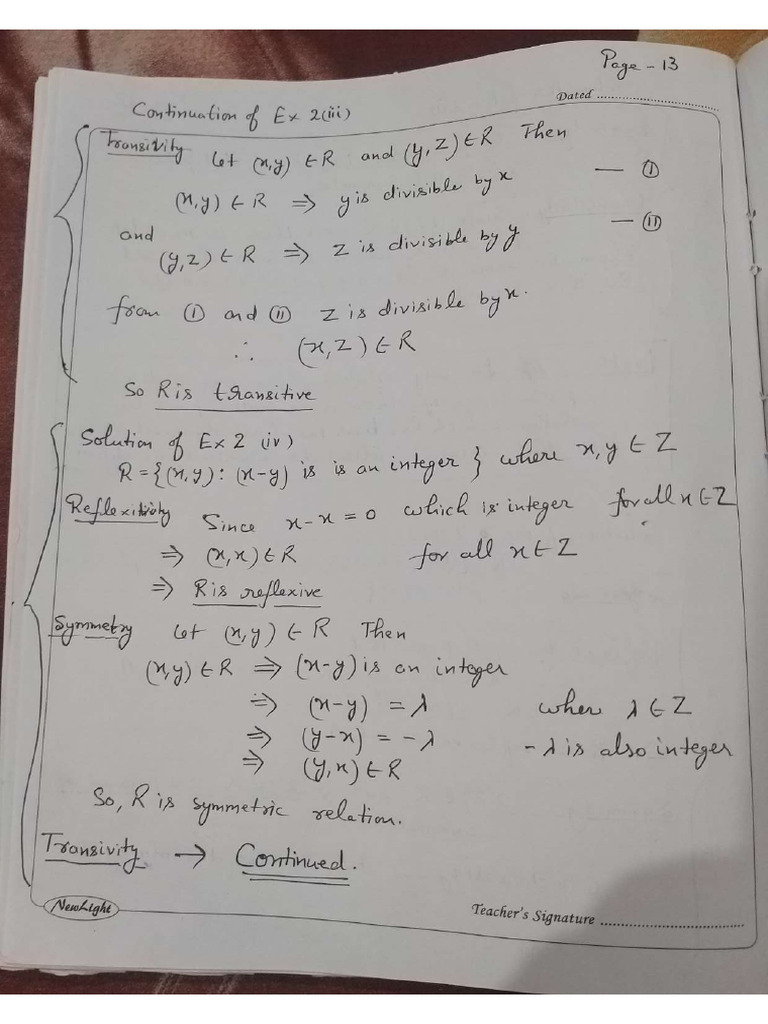 Page - 13
Dated
Continuation of Ex 2(iii)
Transivity Let (x,y) ∈ R and (y,z) ∈ R Then
(x,y) ∈ R ⇒ y is divisible by x — (I)
and
(y,z) ∈ R ⇒ z is divisible by y — (II)
from (I) and (II) z is divisible by x.
∴ (x,z) ∈ R
So R is transitive
Solution of Ex 2 (iv)
R = {(x,y) : (x-y) is is an integer } where x,y ∈ Z
Reflexitivity Since x-x = 0 which is integer for all x ∈ Z
⇒ (x,x) ∈ R for all x ∈ Z
⇒ R is reflexive
Symmetry Let (x,y) ∈ R Then
(x,y) ∈ R ⇒ (x-y) is an integer
⇒ (x-y) = λ where λ ∈ Z
⇒ (y-x) = -λ -λ is also integer
⇒ (y,x) ∈ R
So, R is symmetric relation.
Transivity → Continued.
NewLight
Teacher's Signature